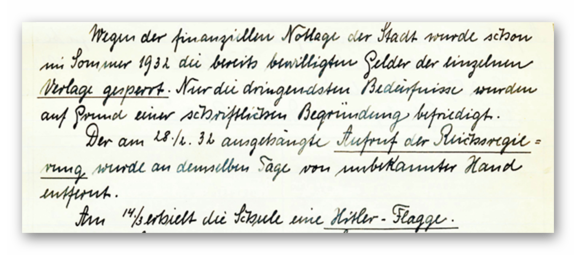 Wegen der finanziellen Notlage der Stadt wurde schon
im Sommer 1932 die bereits bewilligten Gelder der einzelnen
Verlage gesperrt. Nur die dringendsten Bedürfnisse wurden
auf Grund einer schriftlichen Begründung befriedigt.
Der am 28./2. 32 ausgehängte Aufruf der Reichsregie=
rung wurde an demselben Tage von unbekannter Hand
entfernt.
Am 14/3 erhielt die Schule eine Hitler-Flagge.